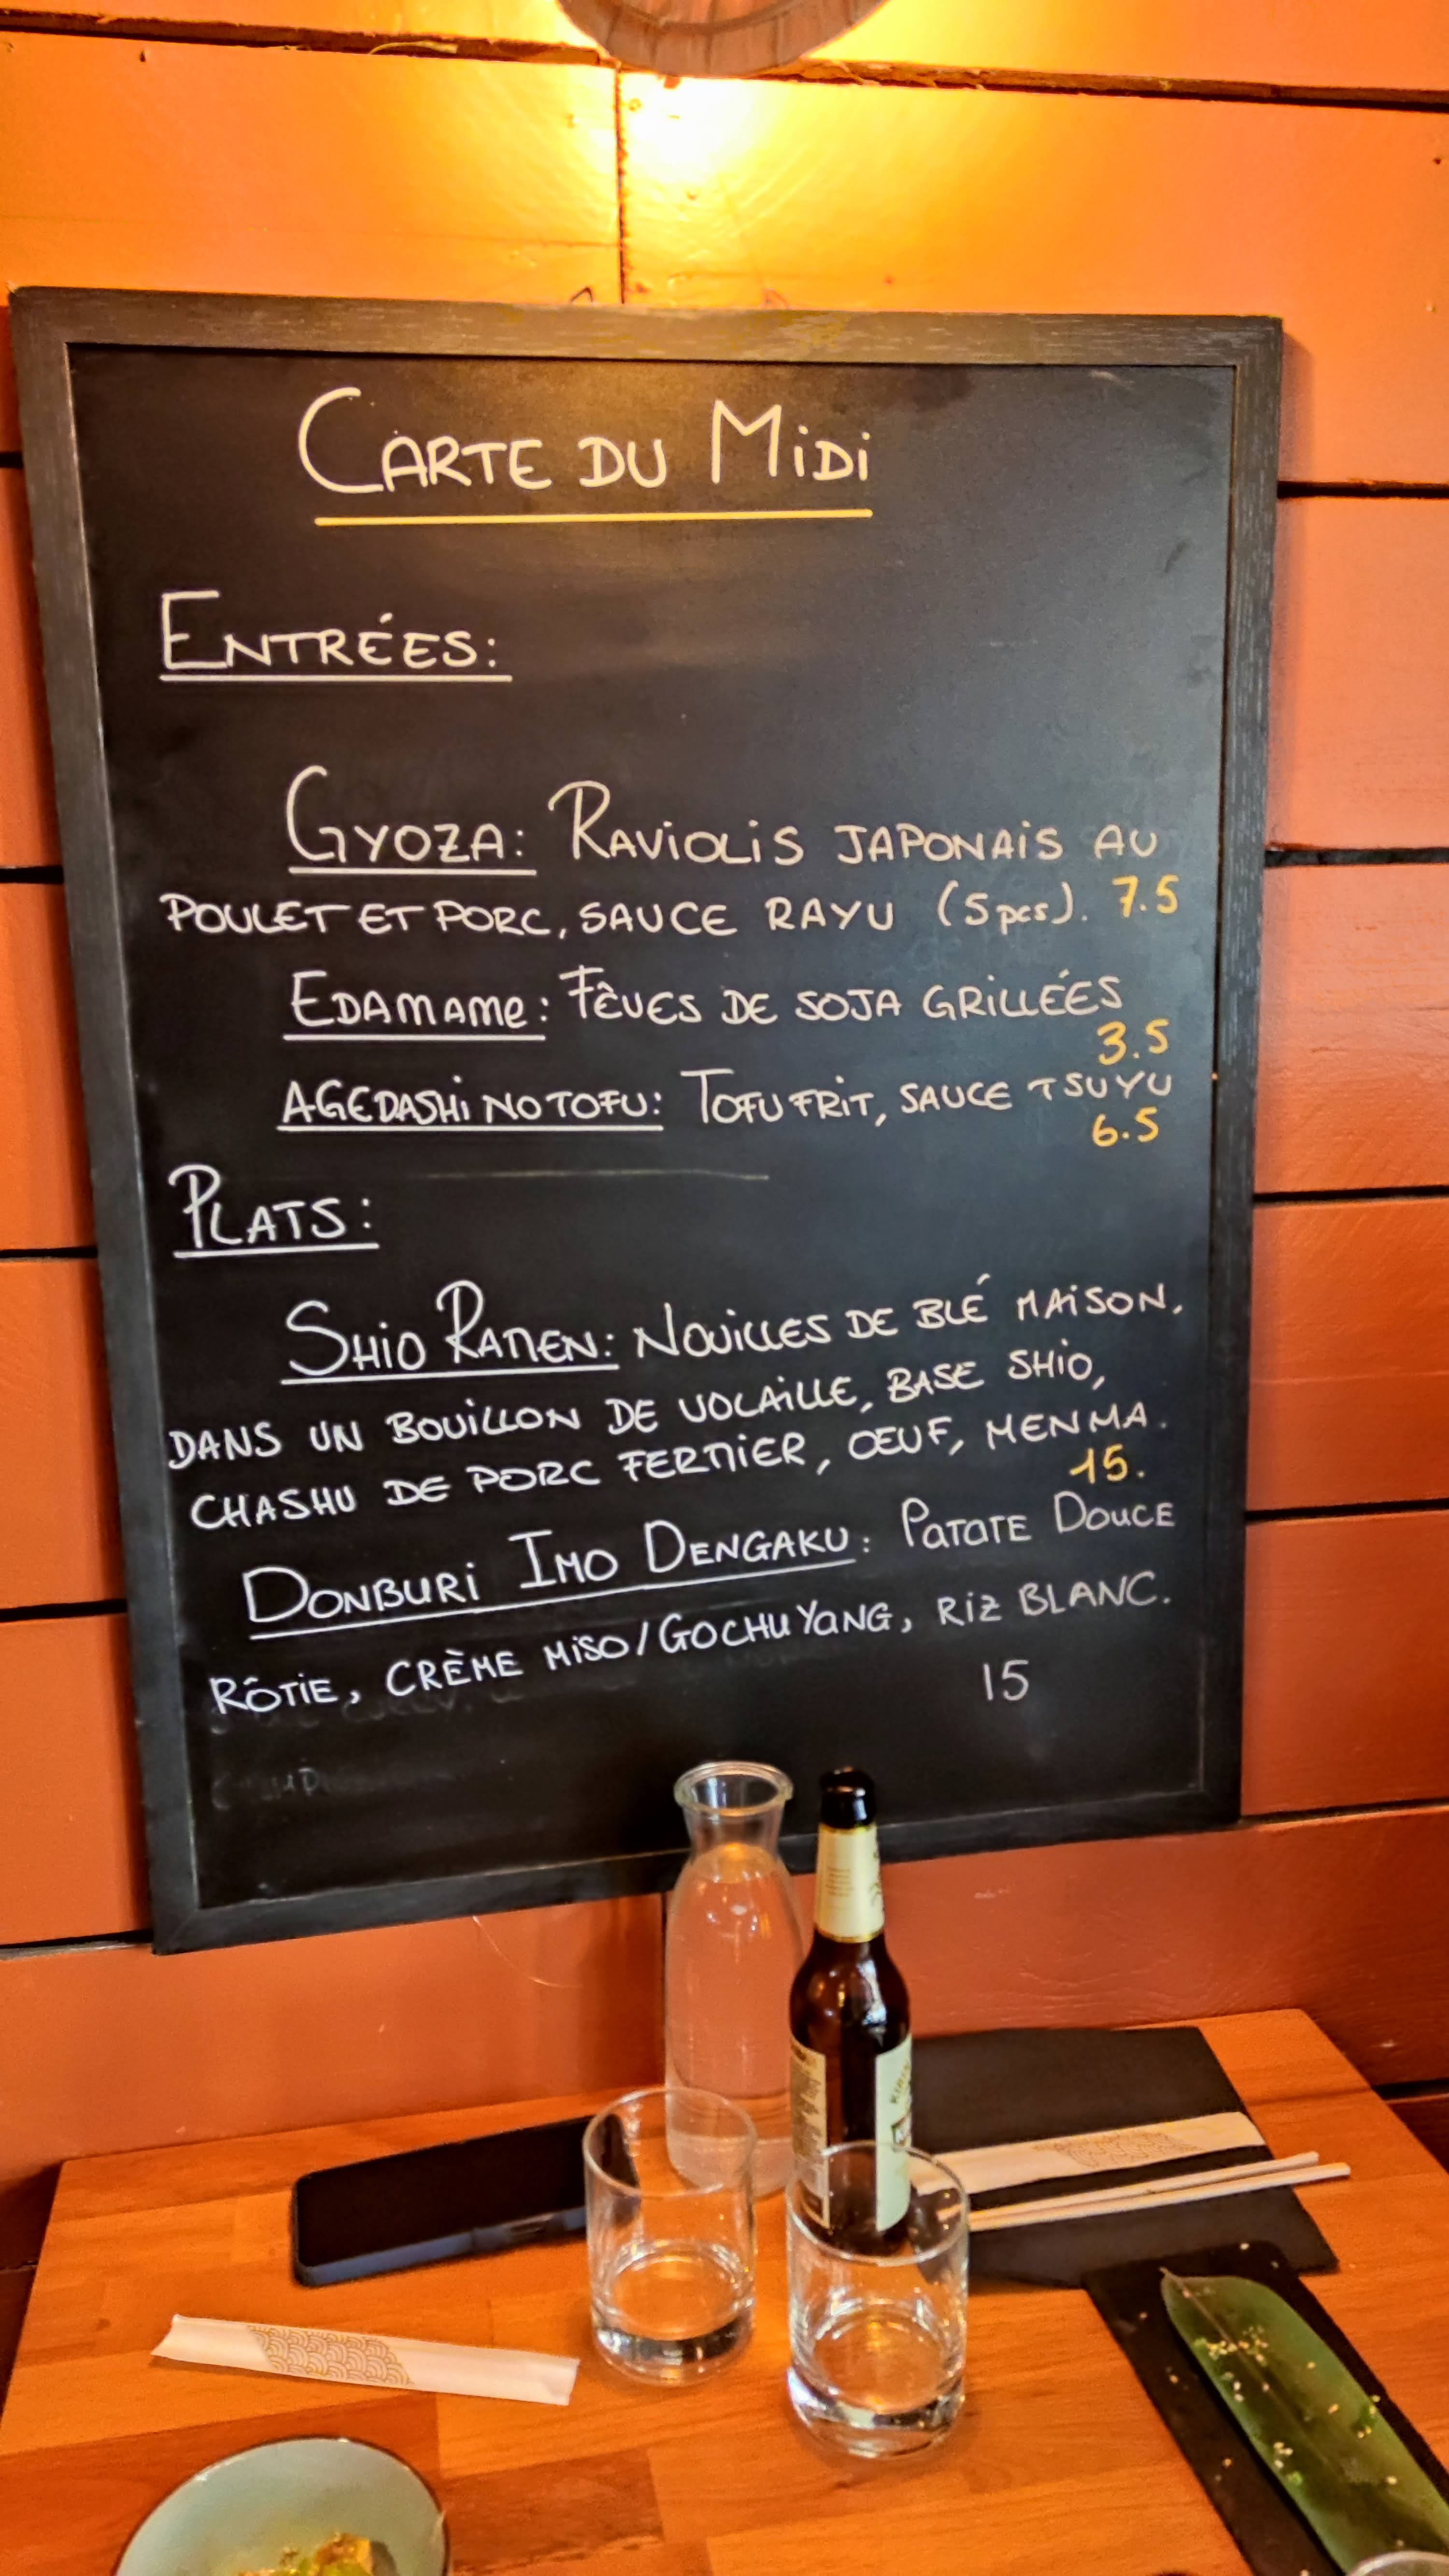 CARTE DU MiDi
ENTRÉES:
GYOZA: RAViOLiS JAPONAiS AU
POULET ET PORC, SAUCE RAYU (5pcs). 7.5
EDAMAME: FÊVES DE SOJA GRiLLÉES
3.5
AGEDASHi NO TOFU: TOFU FRiT, SAUCE TSUYU
6.5
PLATS:
SHiO RAMEN: NOUiLLES DE BLÉ MAiSON.
DANS UN BOUiLLON DE VOLAiLLE, BASE SHiO,
CHASHU DE PORC FERMiER, ŒUF, MENMA.
15.
DONBURi IMO DENGAKU: PATATE DOUCE
RÔTiE, CRÈME MiSO/GOCHUYANG, RiZ BLANC.
15